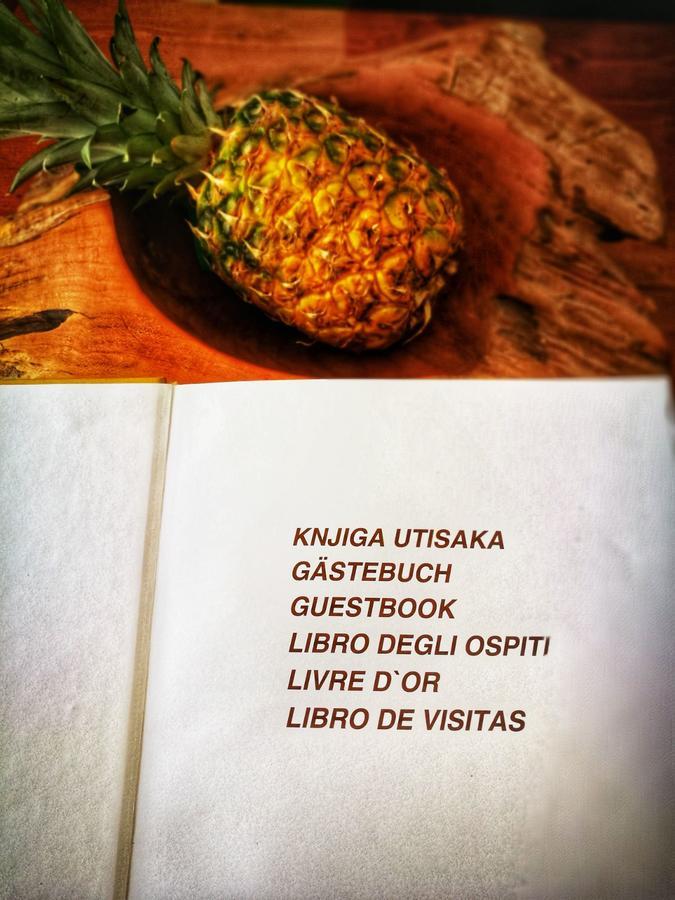 KNJIGA UTISAKA
GÄSTEBUCH
GUESTBOOK
LIBRO DEGLI OSPITI
LIVRE D`OR
LIBRO DE VISITAS